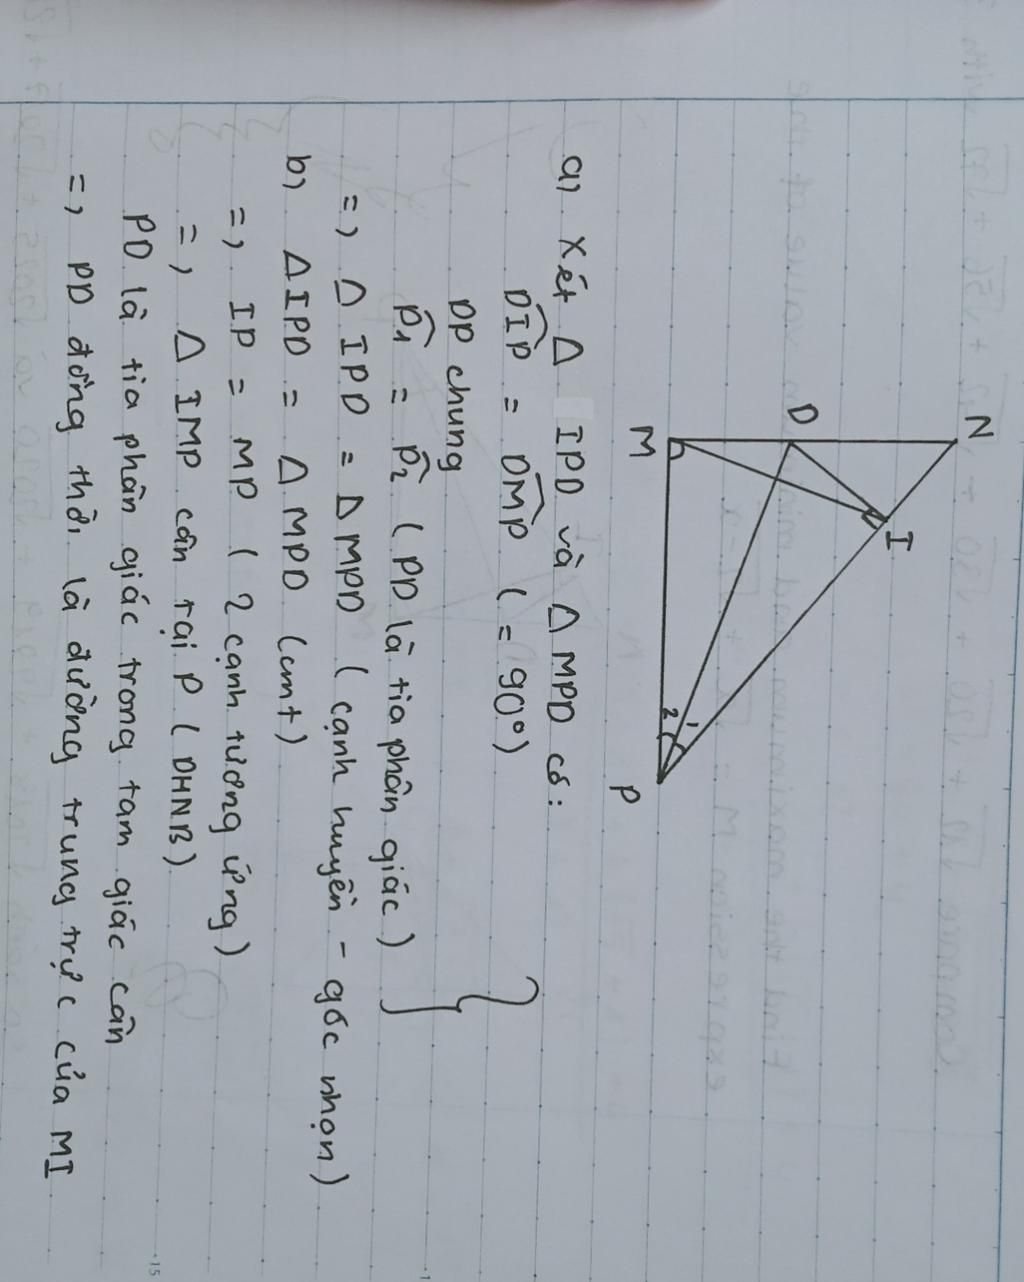 N
D
I
M
2
1
P
a, Xét Δ IPD và Δ MPD có:
D̂IP = D̂MP (= 90°)
DP chung
P̂1 = P̂2 (PD là tia phân giác)
=, Δ IPD = Δ MPD (cạnh huyền - góc nhọn)
b, ΔIPD = Δ MPD (cmt)
=, IP = MP (2 cạnh tương ứng)
=, Δ IMP cân tại P (DHNB)
PD là tia phân giác trong tam giác cân
=, PD đồng thời là đường trung trực của MI
15